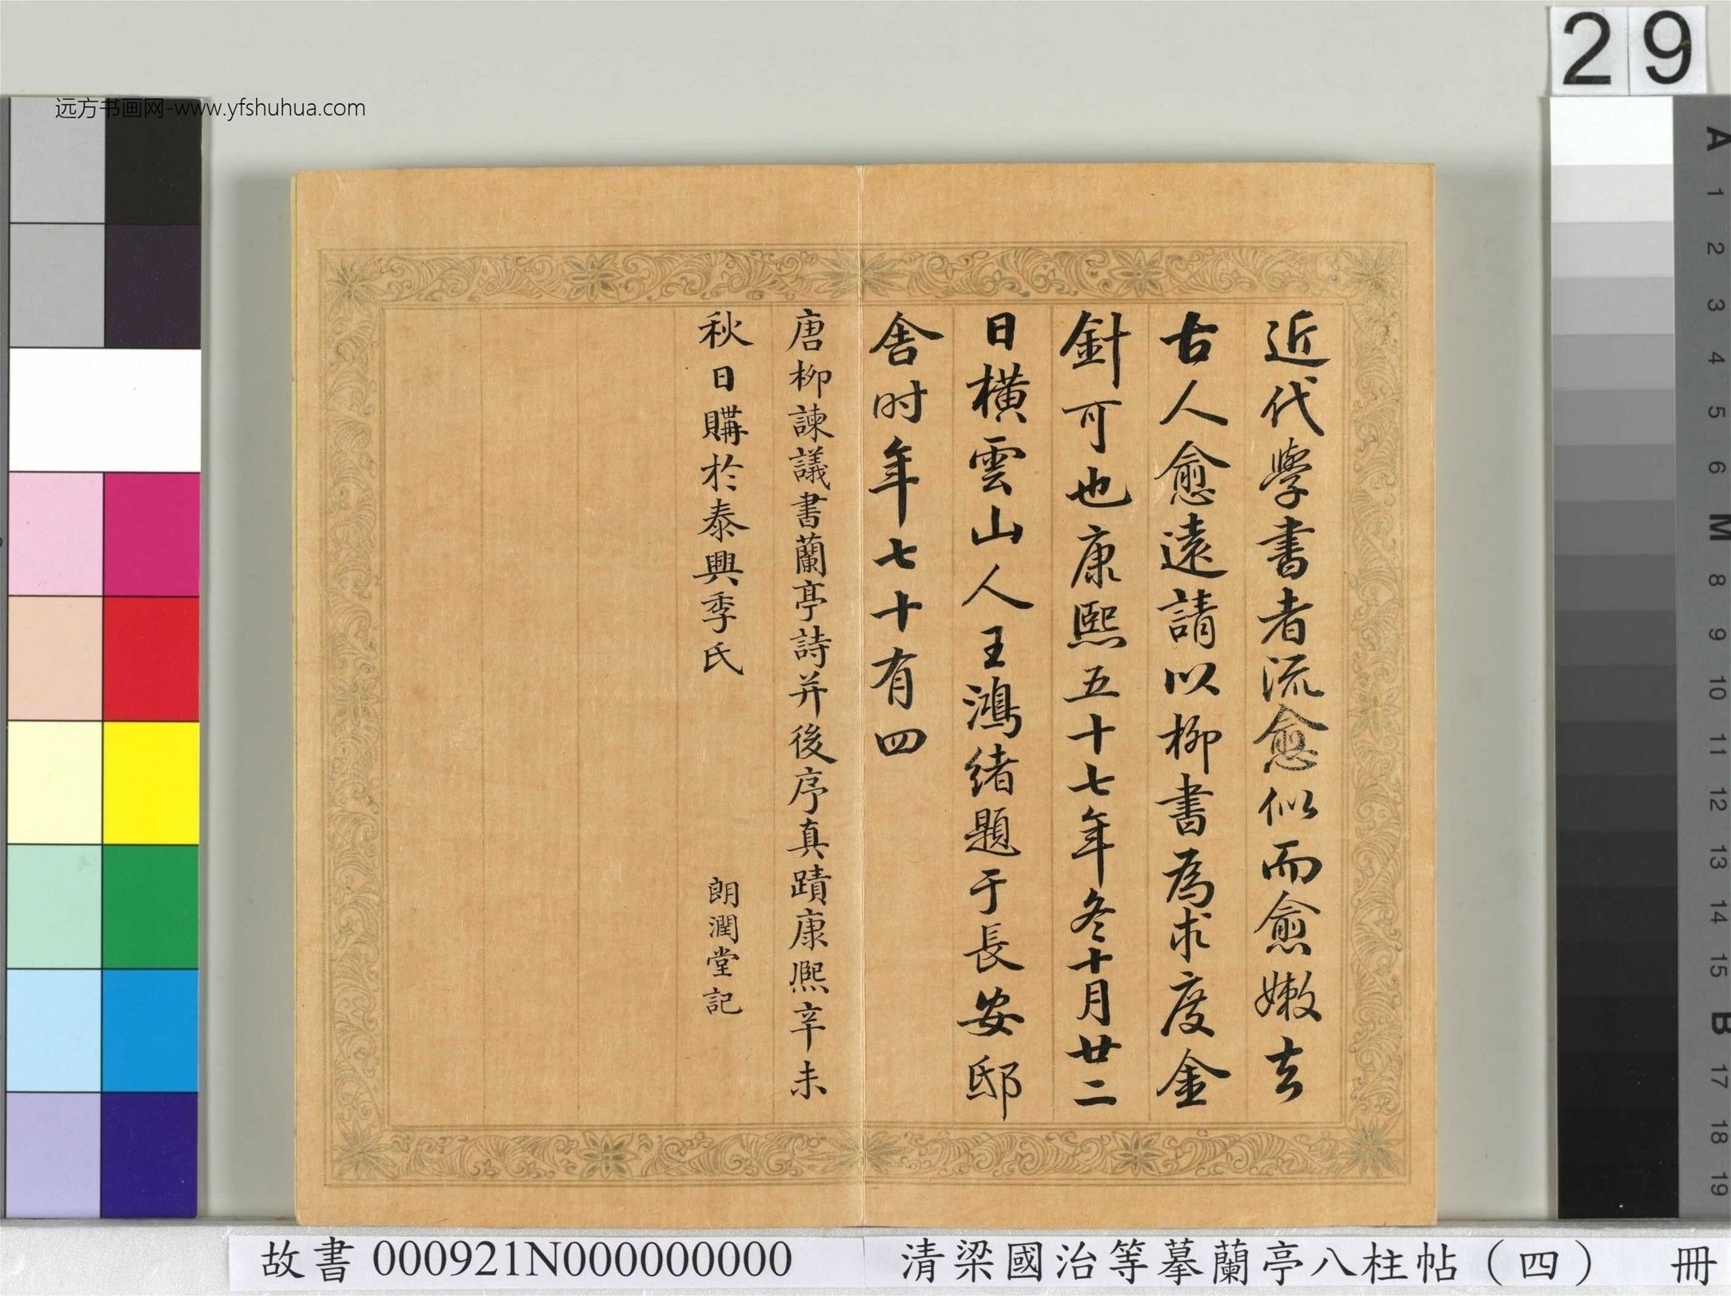 29
远方书画网-www.yfshuhua.com
近代學書者流愈似而愈嫩去
古人愈遠請以柳書為求度金
針可也康熙五十七年冬十月廿二
日橫雲山人王鴻緒題于長安邸
舍时年七十有四
唐柳諫議書蘭亭詩并後序真蹟康熙辛未
秋日購於泰興季氏 朗潤堂記
A
1
2
3
4
5
6
M
8
9
10
11
12
13
14
15
B
17
18
19
故書 000921N000000000
清梁國治等摹蘭亭八柱帖（四） 冊